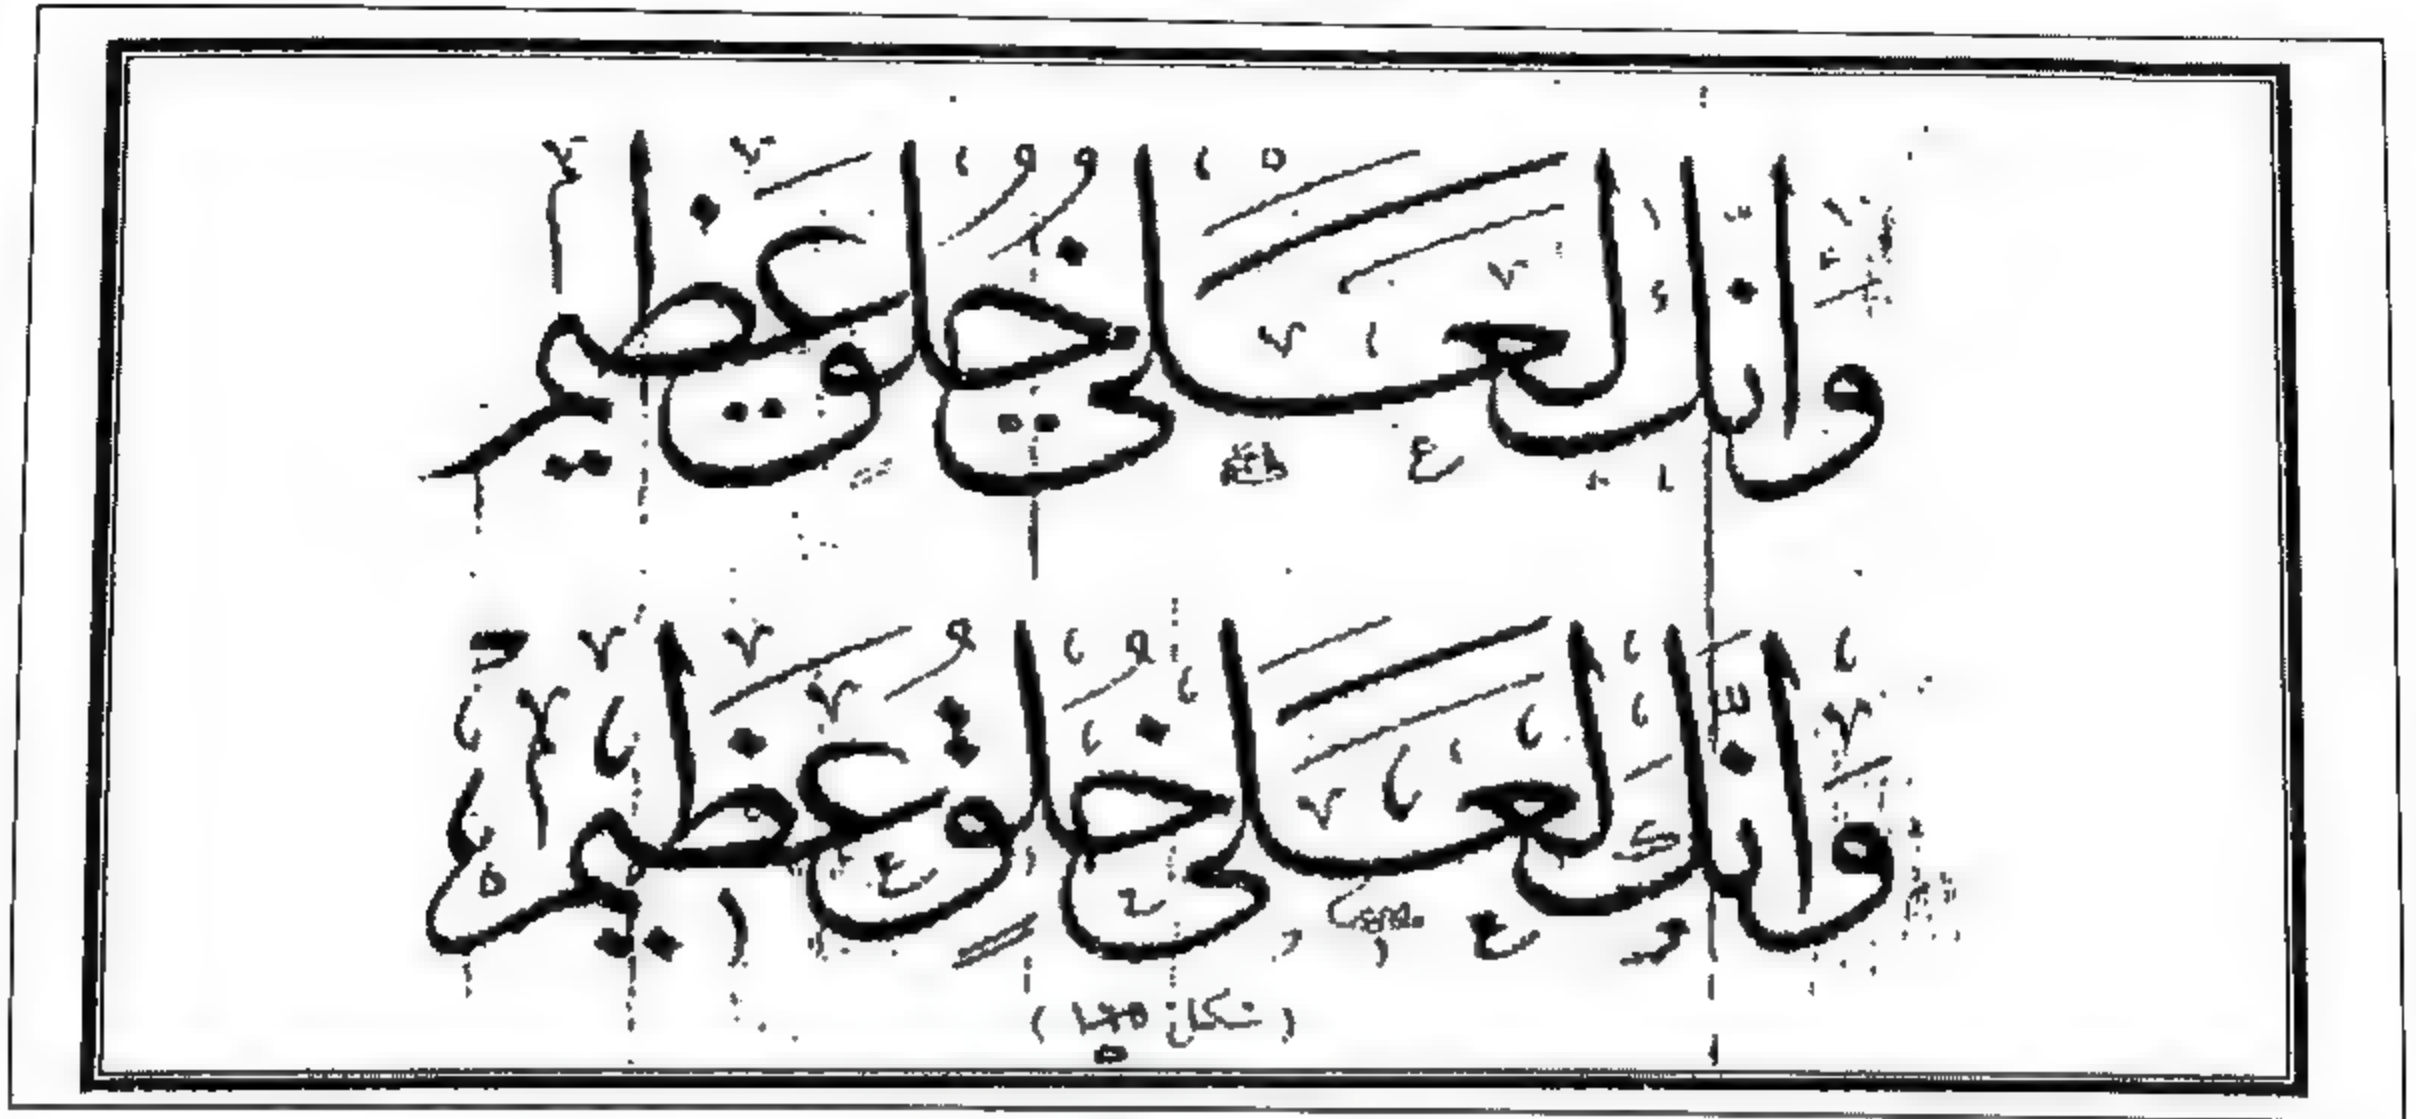 وإنك لعلى خلق عظيم
وإنك لعلى خلق عظيم
(شكل ١٦٥)